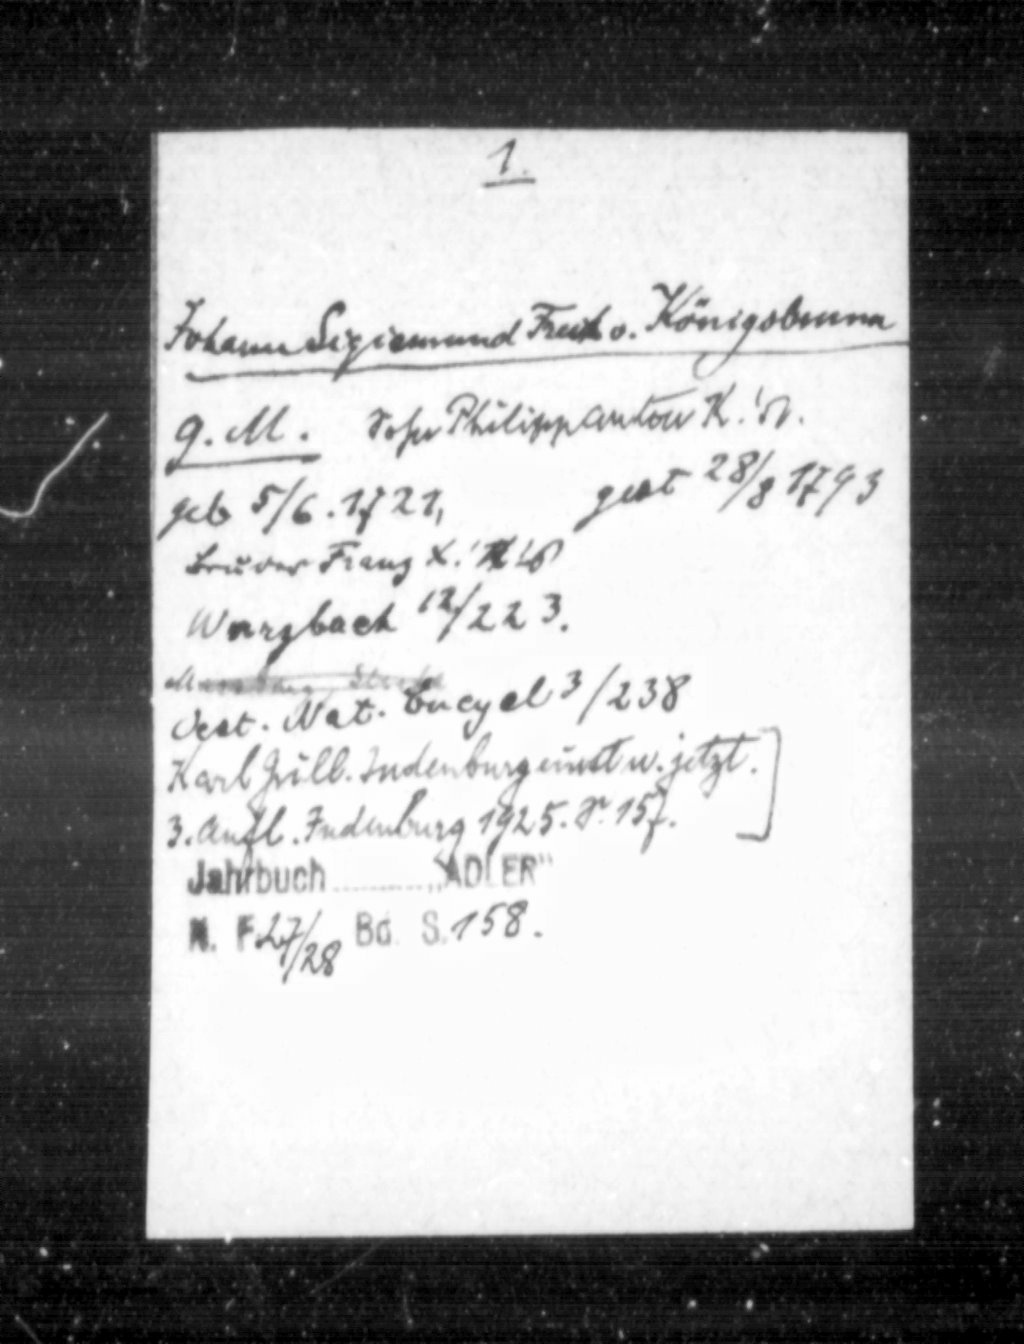 1.
Johann Sigismund Freih v. Königsbrunn
G. M. Sohn Philipp Anton K.
geb 5/6. 1721, gest 28/8 1793
Bruder Franz X.
Wurzbach 12/223.
Oest. Nat. Encycl 3/238
Karl Grill. Judenburg einst u. jetzt.
3. Aufl. Judenburg 1925. S. 157.
Jahrbuch ......... „ADLER“
N. F. 27/28 Bd. S. 158.